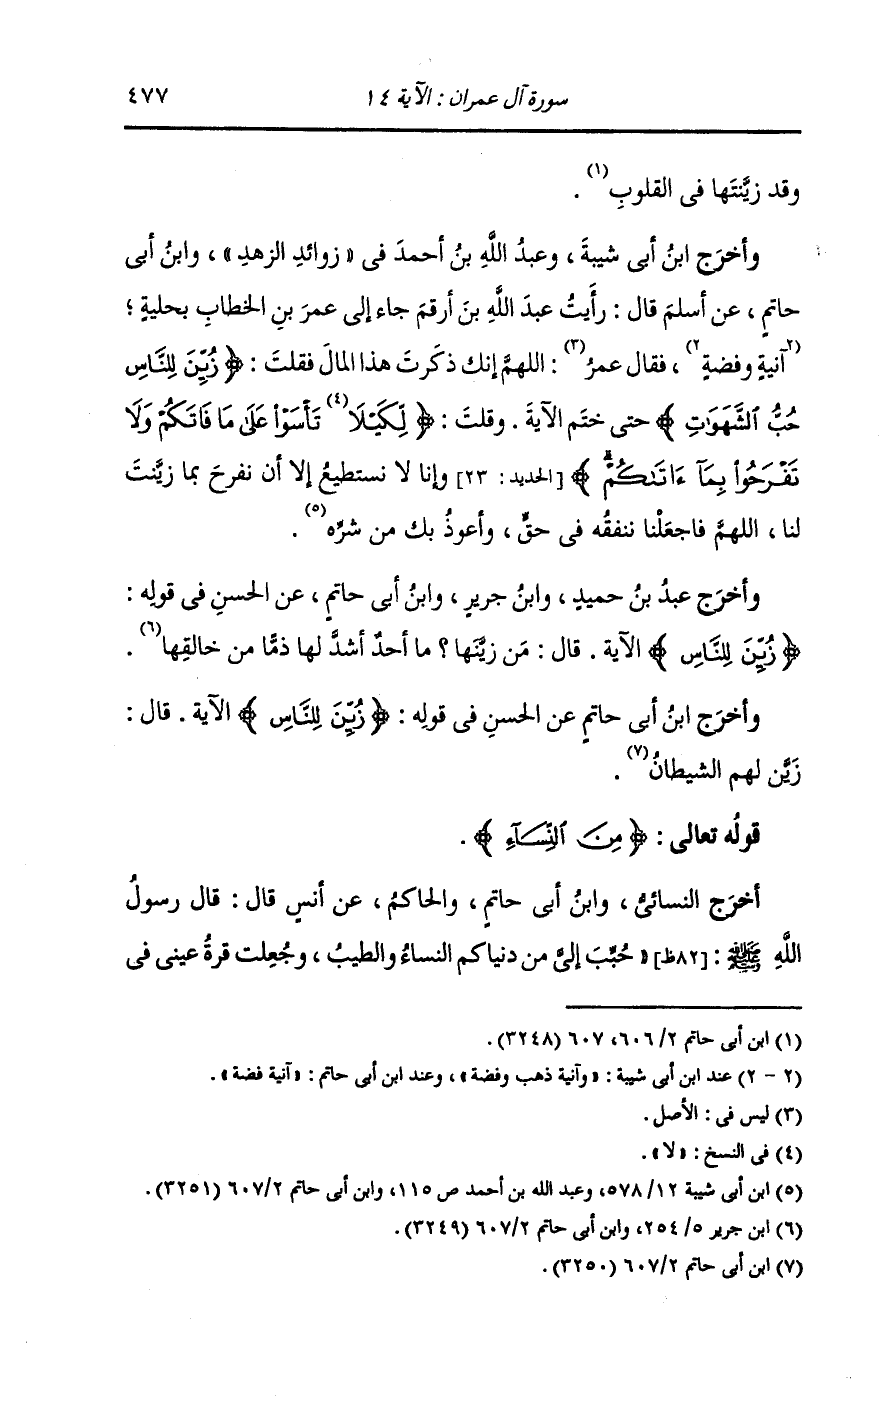 سورة آل عمران : الآية ١٤ ٤٧٧
وقد زيَّنتَها فى القلوبِ(١) .
وأخرَج ابنُ أبى شيبةَ ، وعبدُ اللَّهِ بنُ أحمدَ فى « زوائدِ الزهدِ » ، وابنُ أبى
حاتمٍ ، عن أسلمَ قال : رأَيتُ عبدَ اللَّهِ بنَ أرقمَ جاء إلى عمرَ بنِ الخطابِ بحليةٍ ؛
(٢آنيةٍ وفضةٍ٢) ، فقال عمرُ(٣) : اللهمَّ إنك ذكَرتَ هذا المالَ فقلتَ : ﴿ زُيِّنَ لِلنَّاسِ
حُبُّ ٱلشَّهَوَٰتِ ﴾ حتى ختَم الآيةَ . وقلتَ : ﴿ لِّكَيْلَا(٤) تَأْسَوْا۟ عَلَىٰ مَا فَاتَكُمْ وَلَا
تَفْرَحُوا۟ بِمَآ ءَاتَىٰكُمْ ۗ ﴾ [الحديد : ٢٣] وإنا لا نستطيعُ إلا أن نفرحَ بما زيَّنتَ
لنا ، اللهمَّ فاجعَلْنا ننفقُه فى حقٍّ ، وأعوذُ بك من شرِّه(٥) .
وأخرَج عبدُ بنُ حميدٍ ، وابنُ جريرٍ ، وابنُ أبى حاتمٍ ، عن الحسنِ فى قولِه :
﴿ زُيِّنَ لِلنَّاسِ ﴾ الآية . قال : مَن زيَّنَها ؟ ما أحدٌ أشدَّ لها ذمًّا من خالقِها(٦) .
وأخرَج ابنُ أبى حاتمٍ عن الحسنِ فى قولِه : ﴿ زُيِّنَ لِلنَّاسِ ﴾ الآية . قال :
زَيَّن لهم الشيطانُ(٧) .
قولُه تعالى : ﴿ مِنَ ٱلنِّسَآءِ ﴾ .
أخرَج النسائىُّ ، وابنُ أبى حاتمٍ ، والحاكمُ ، عن أنسٍ قال : قال رسولُ
اللَّهِ ﷺ : [٨٢ظ] « حُبِّبَ إلىَّ من دنياكم النساءُ والطيبُ ، وجُعِلت قرةُ عينى فى
(١) ابن أبى حاتم ٢/ ٦٠٦، ٦٠٧ (٣٢٤٨).
(٢ - ٢) عند ابن أبى شيبة : «وآنية ذهب وفضة» ، وعند ابن أبى حاتم : «آنية فضة» .
(٣) ليس فى : الأصل.
(٤) فى النسخ : «لا» .
(٥) ابن أبى شيبة ١٢/ ٥٧٨، وعبد الله بن أحمد ص ١١٥، وابن أبى حاتم ٦٠٧/٢ (٣٢٥١).
(٦) ابن جرير ٥/ ٢٥٤، وابن أبى حاتم ٦٠٧/٢ (٣٢٤٩).
(٧) ابن أبى حاتم ٦٠٧/٢ (٣٢٥٠).